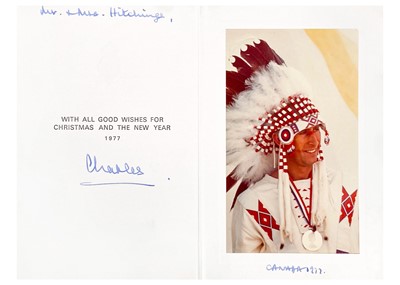 Mr. & Mrs. Hitchings,
WITH ALL GOOD WISHES FOR
CHRISTMAS AND THE NEW YEAR
1977
Charles.
CANADA 1977.